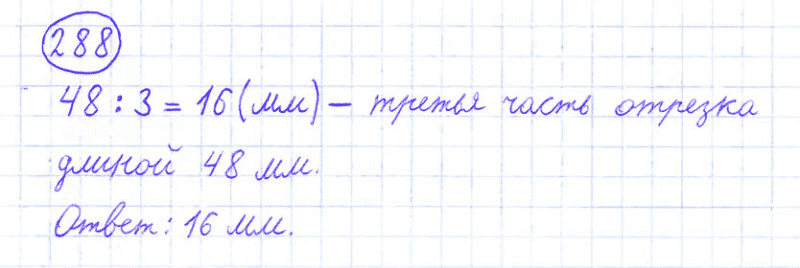 288
48 : 3 = 16 (мм) – третья часть отрезка
длиной 48 мм.
Ответ: 16 мм.